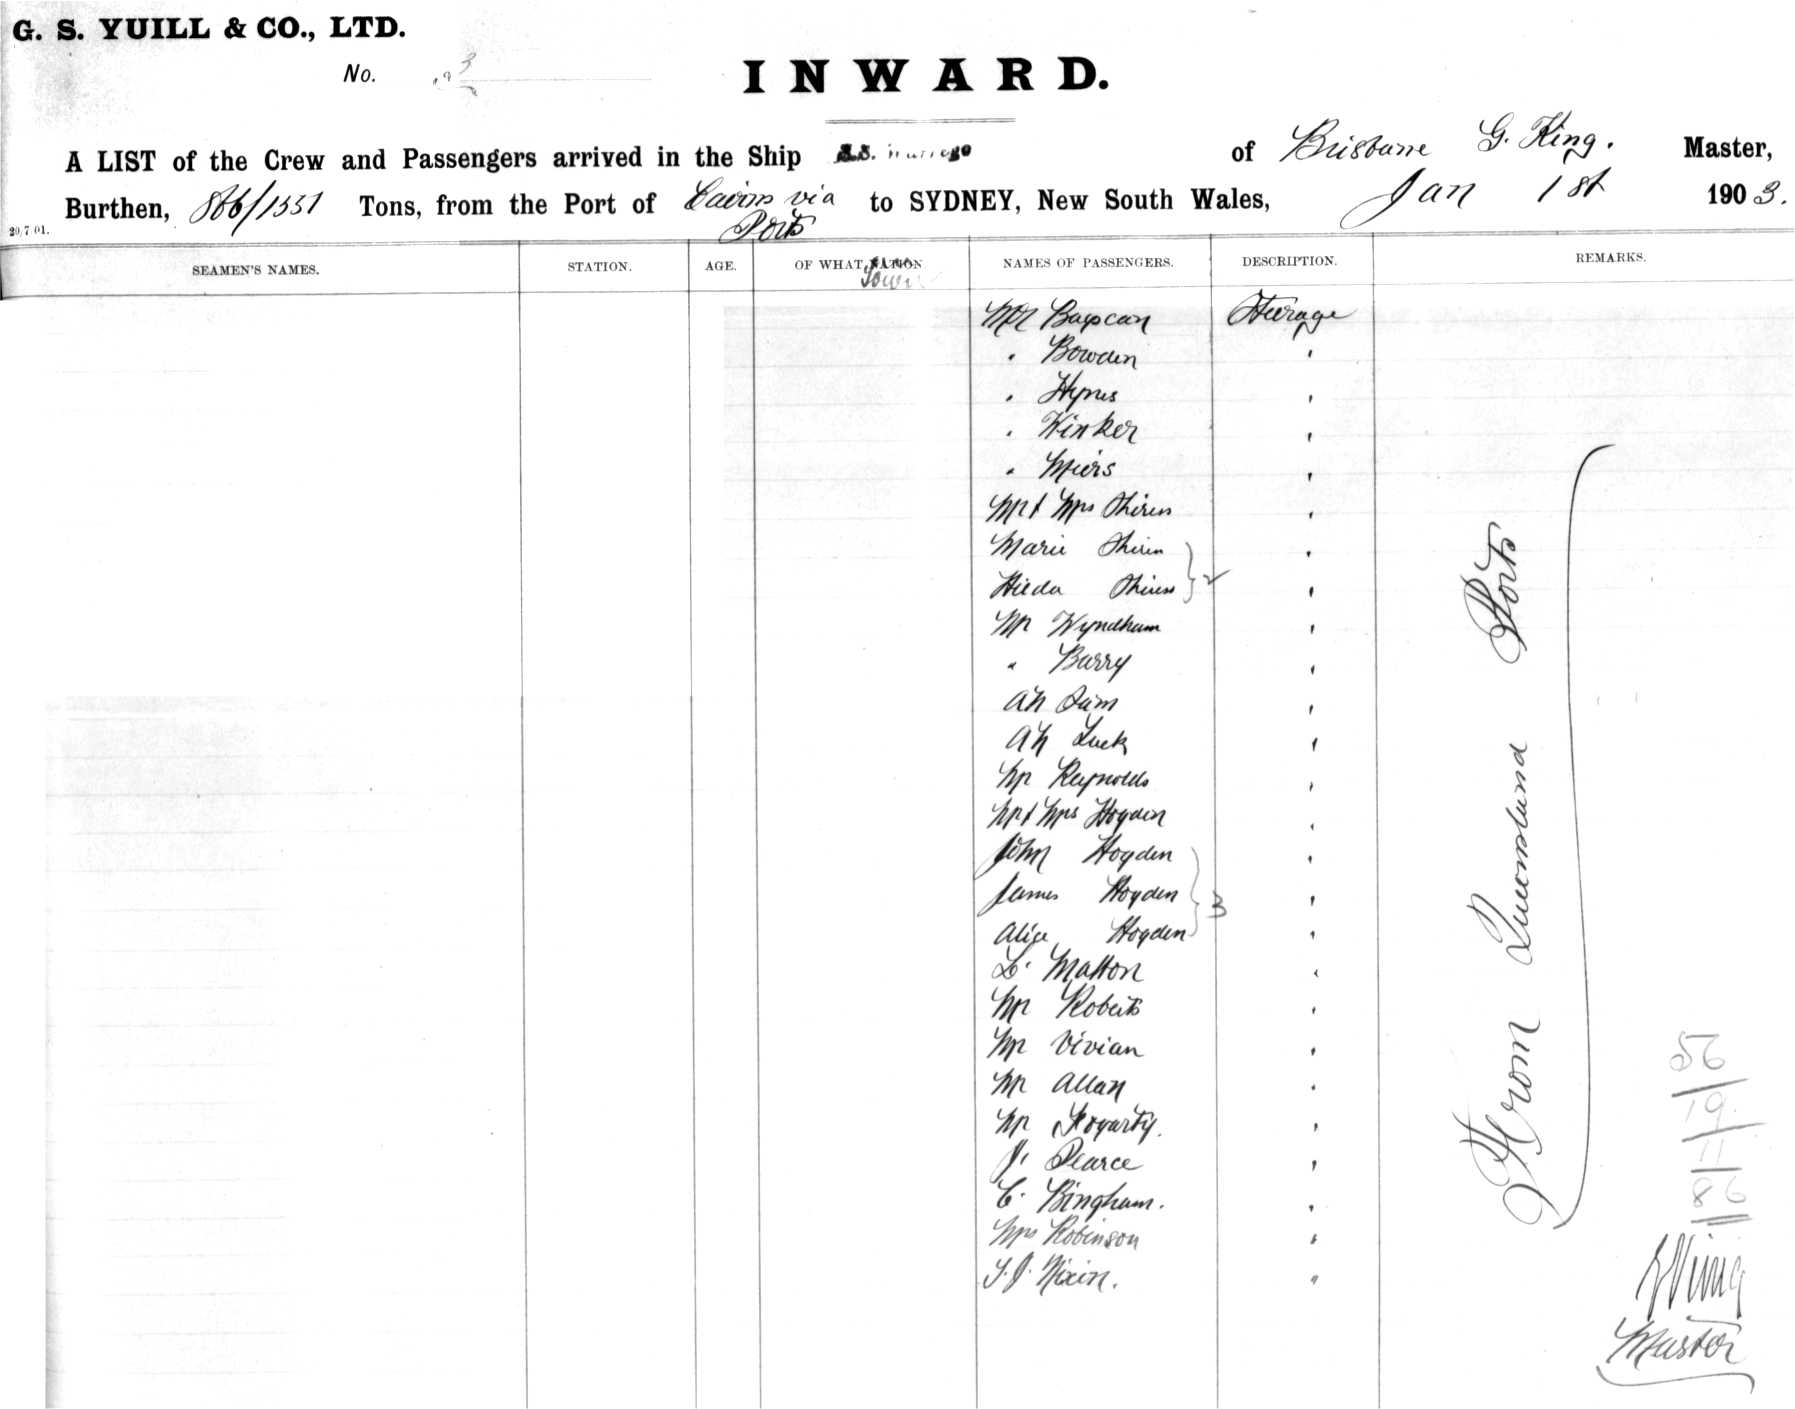 G. S. YUILL & CO., LTD.
No. 3
INWARD.
A LIST of the Crew and Passengers arrived in the Ship S.S. Warrego of Brisbane G. King. Master,
Burthen, 866/1551 Tons, from the Port of Cairns via Ports to SYDNEY, New South Wales, Jan 1st 1903.
20/7/01.
SEAMEN'S NAMES. STATION. AGE. OF WHAT NATION NAMES OF PASSENGERS. DESCRIPTION. REMARKS.
Mr Steerage
" Bowden "
" Hynes "
" Kinker "
" Miers "
Mr & Mrs "
Marie "
Hilda " 2
Mr Wyndham "
" Barry "
Ah "
Ah Luck "
Mr Reynolds "
Mr & Mrs Hogden "
John Hogden "
James Hogden " 3
Alice Hogden "
Mr Roberts "
Mr Vivian "
Mr Allan "
Mr Fogarty. "
J. Pearce "
C. Bingham. "
Mrs Robinson "
Nixon. "
From Queensland Ports
56
19
11
86
G King
Master